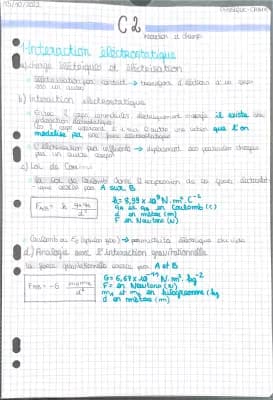 13/10/2022
Physique-Chimie
C2
Interaction et champ
1-Interaction électrostatique
a) charge électriques et électrisation
électrisation par contact → transfert d'électrons d'un corps
à un autre
b) Interaction électrostatique
Entre 2 corps immobiles électriquement chargés il existe une
interaction électrostatique
que l'on
modélise par une force électrostatique
L'électrisation par influence → déplacement des particules chargées
par un autre corps
c) Loi de Coulomb
La loi de Coulomb donne l'expression de la force électrostat-
-ique exercée par A sur B
FA/B = k qA qB / d²
k = 8,99 × 10⁹ N.m².C⁻²
qA et qB en Coulomb (C)
d en mètre (m)
F en Newton (N)
→ permittivité électrique du vide
d) Analogie avec l'interaction gravitationnelle
la force gravitationnelle exercée par A et B
FA/B = -G mA mB / d²
G = 6,67 × 10⁻¹¹ N.m².kg⁻²
F = en Newtons (N)
mA et mB en kilogramme (kg
d en mètres (m)